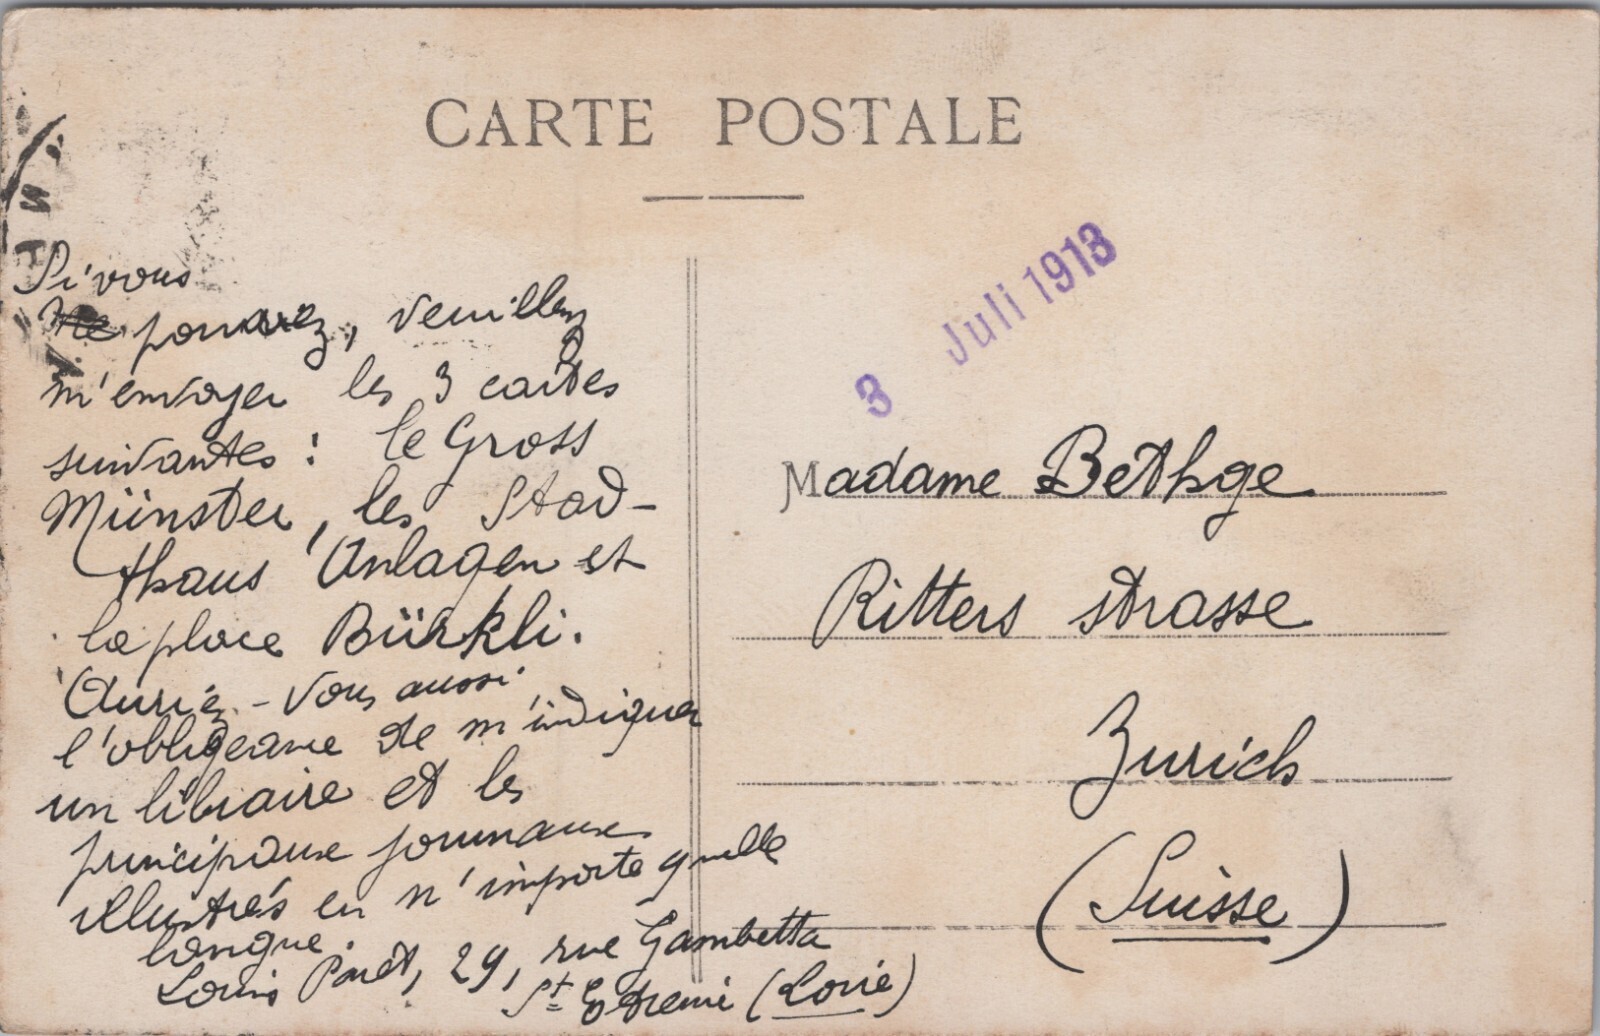 CARTE POSTALE
3 Juli 1913
Si vous
pouvez, veuillez
m'envoyer les 3 cartes
suivantes : le Gross
Münster, les Stad-
thaus Anlagen et
la place Bürkli.
Auriez-vous aussi
l'obligeance de m'indiquer
un libraire et les
principaux journaux
illustrés en n'importe quelle
langue.
Louis 29, rue Gambetta
St Etienne (Loire)
Madame Bethge
Ritters strasse
Zurich
(Suisse)